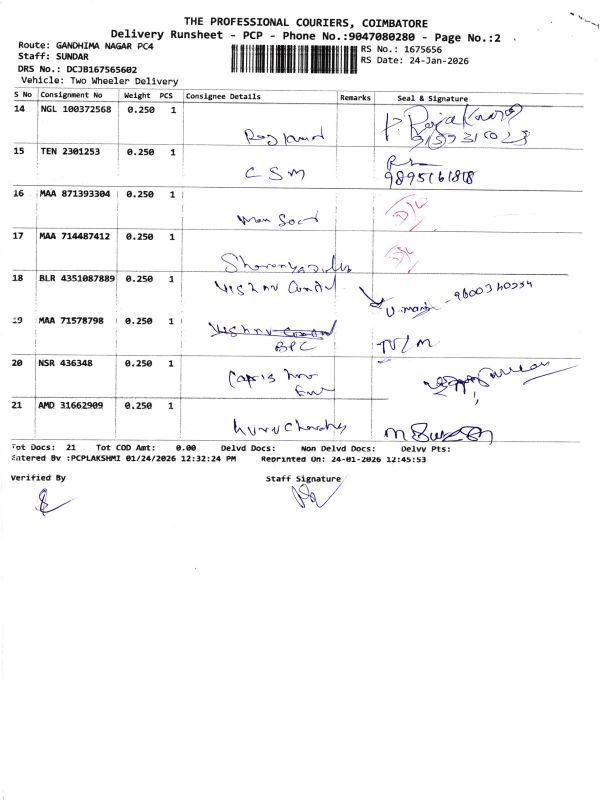 THE PROFESSIONAL COURIERS, COIMBATORE
Delivery Runsheet - PCP - Phone No.:9047080280 - Page No.:2
Route: GANDHIMA NAGAR PC4
RS No.: 1675656
Staff: SUNDAR
RS Date: 24-Jan-2026
DRS No.: DCJB167565602
Vehicle: Two Wheeler Delivery
S No Consignment No Weight PCS Consignee Details Remarks Seal & Signature
14 NGL 100372568 0.250 1
P. Rajakumar
15 TEN 2301253 0.250 1
CSM
9895161818
16 MAA 871393304 0.250 1
D/L
17 MAA 714487412 0.250 1
D/L
18 BLR 4351087889 0.250 1
19 MAA 71578798 0.250 1
BPC
20 NSR 436348 0.250 1
21 AMD 31662909 0.250 1
Tot Docs: 21 Tot COD Amt: 0.00 Delvd Docs: Non Delvd Docs: Delvy Pts:
Entered By :PCPLAKSHMI 01/24/2026 12:32:24 PM Reprinted On: 24-01-2026 12:45:53
Verified By Staff Signature